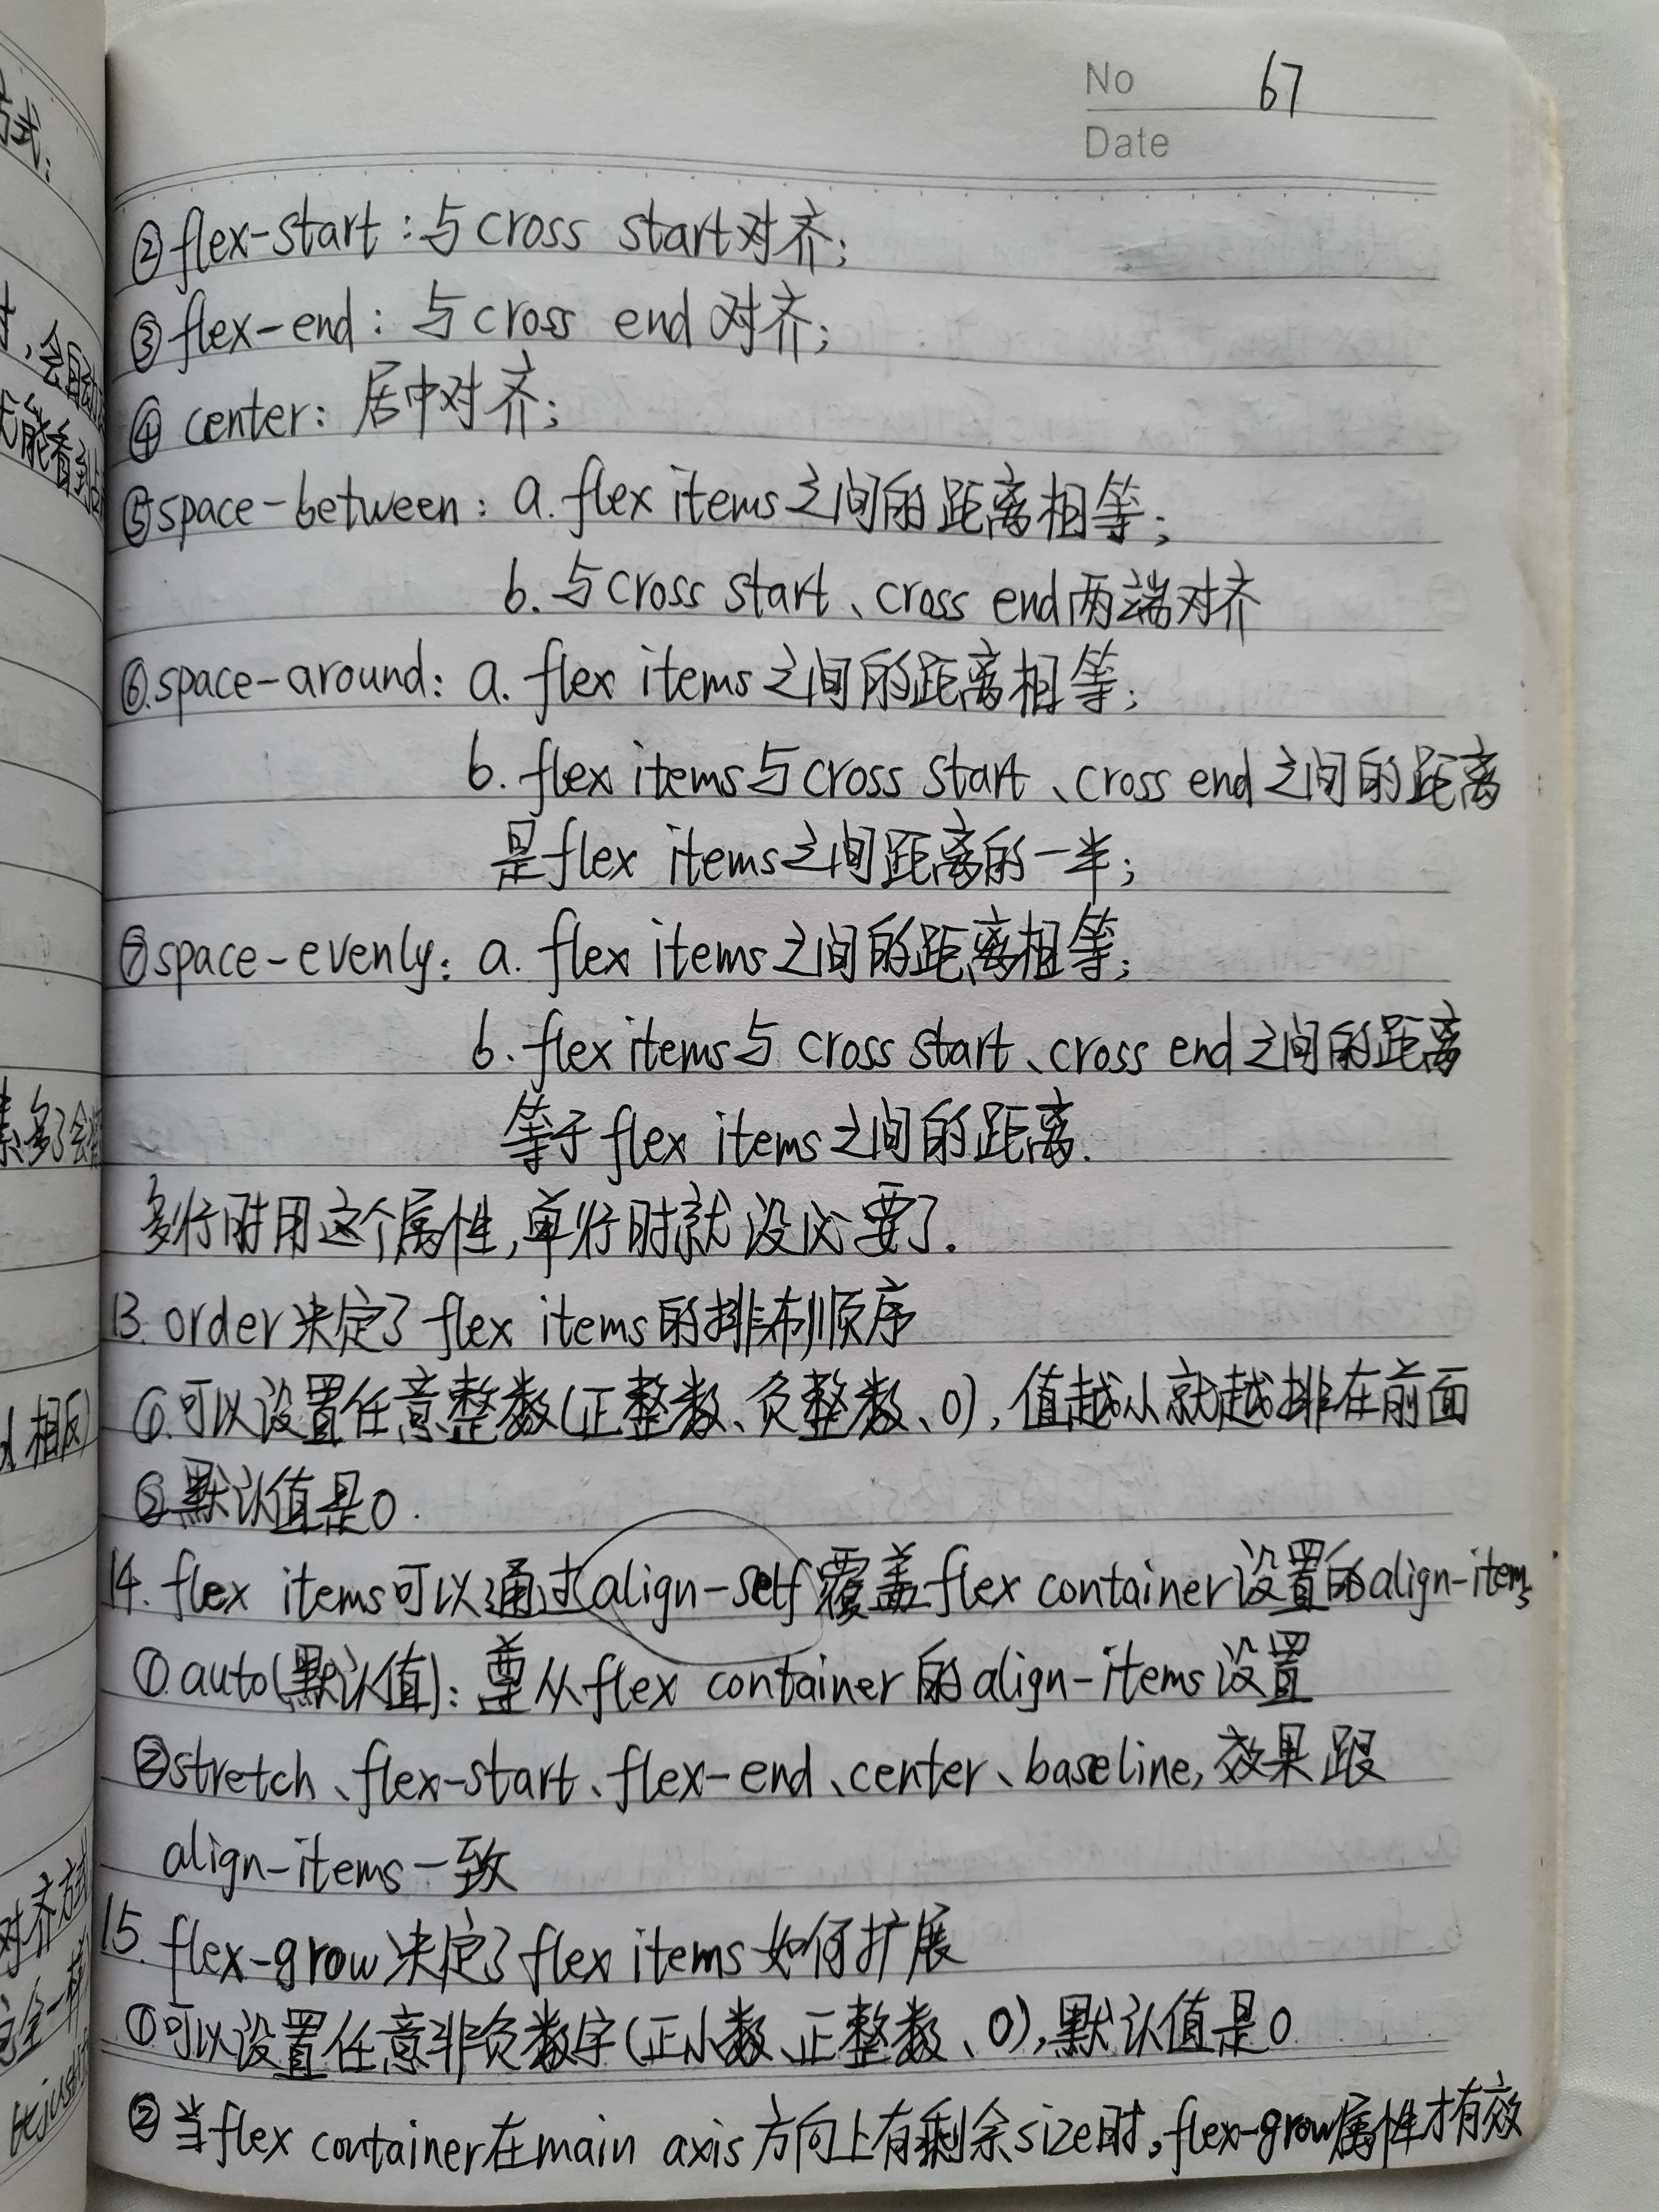 No 67
Date
②flex-start:与cross start对齐;
③flex-end: 与cross end对齐;
④ center: 居中对齐;
⑤space-between: a.flex items之间的距离相等;
b.与cross start、cross end两端对齐
⑥.space-around: a. flex items之间的距离相等;
b. flex items与cross start、cross end之间的距离
是flex items之间距离的一半;
⑦space-evenly: a. flex items之间的距离相等;
b.flex items与 cross start、cross end之间的距离
等于flex items之间的距离.
多行时用这个属性,单行时就没必要了.
13. order决定了flex items的排布顺序
①.可以设置任意整数(正整数、负整数、0),值越小就越排在前面
②默认值是0.
14. flex items可以通过align-self覆盖flex container设置的align-items
①.auto(默认值):尊从flex container的align-items设置
②stretch、flex-start、flex-end、center、baseline,效果跟
align-items一致
15. flex-grow决定了flex items如何扩展
①可以设置任意非负数字(正小数、正整数、0),默认值是0
②当flex container在main axis方向上有剩余size时,flex-grow属性才有效